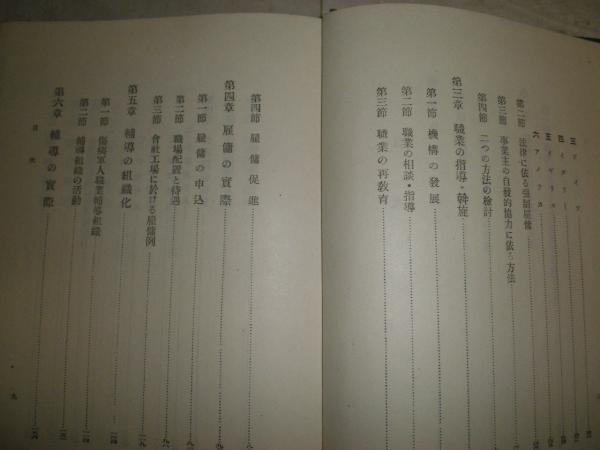 三 ドイツ
四 イタリー
五 イギリス
六 アメリカ
第二節 法律に依る強制雇傭
第三節 事業主の自發的協力に依る方法
第四節 二つの方法の檢討
第三章 職業の指導・斡旋
第一節 機構の發展
第二節 職業の相談・指導
第三節 職業の再敎育
第四節 雇傭促進
第四章 雇傭の實際
第一節 雇傭の申込
第二節 職場配置と待遇
第三節 會社工場に於ける雇傭例
第五章 輔導の組織化
第一節 傷痍軍人職業輔導組織
第二節 輔導組織の活動
第六章 輔導の實際
目次
九